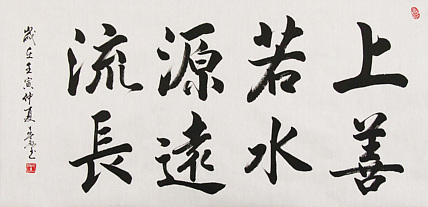 上善
若水
源遠
流長
歲在壬寅仲夏